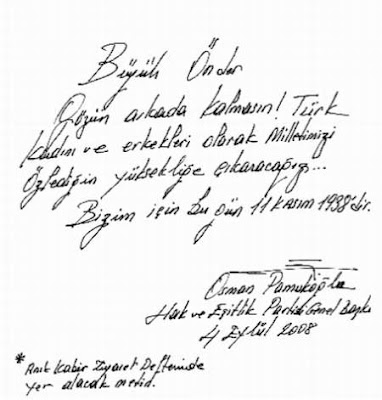 Büyük Önder
Gözün arkada kalmasın! Türk
kadın ve erkekleri olarak Milletimizi
özlediğin yüksekliğe çıkaracağız...
Bizim için bu gün 11 Kasım 1938'dir.
Osman Pamukoğlu
Hak ve Eşitlik Partisi Genel Başkı
4 Eylül 2008
* Anıt Kabir Ziyaret Defterinde
yer alacak metin.